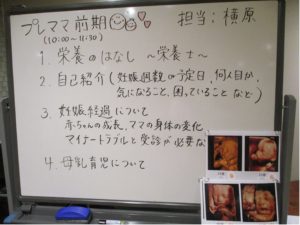 プレママ前期
担当：横原
(10:00～11:30)
1. 栄養のはなし ～栄養士～
2. 自己紹介(妊娠週数や予定日、何人目か、
気になること、困っていること など)
3. 妊娠経過について
赤ちゃんの成長、ママの身体の変化、
マイナートラブルと受診が必要な
4. 母乳育児について